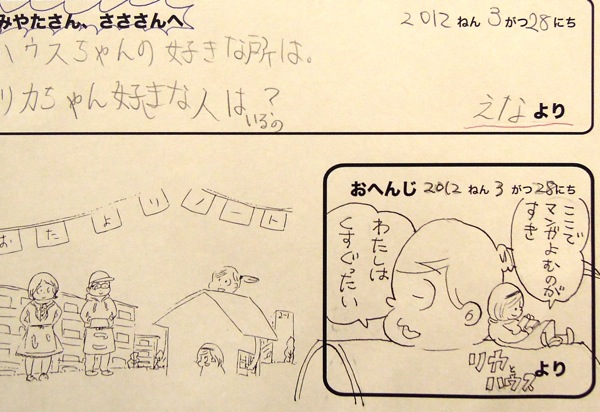 みやたさん、さささんへ
2012 ねん 3 がつ 28 にち
ハウスちゃんの好きな所は。
リカちゃん好きな人は?
いるの
えな より
おたよりノート
2-1
おへんじ 2012 ねん 3 がつ 28 にち
ここで
マンガよむのが
すき
わたしは
くすぐったい
リカと
ハウス より